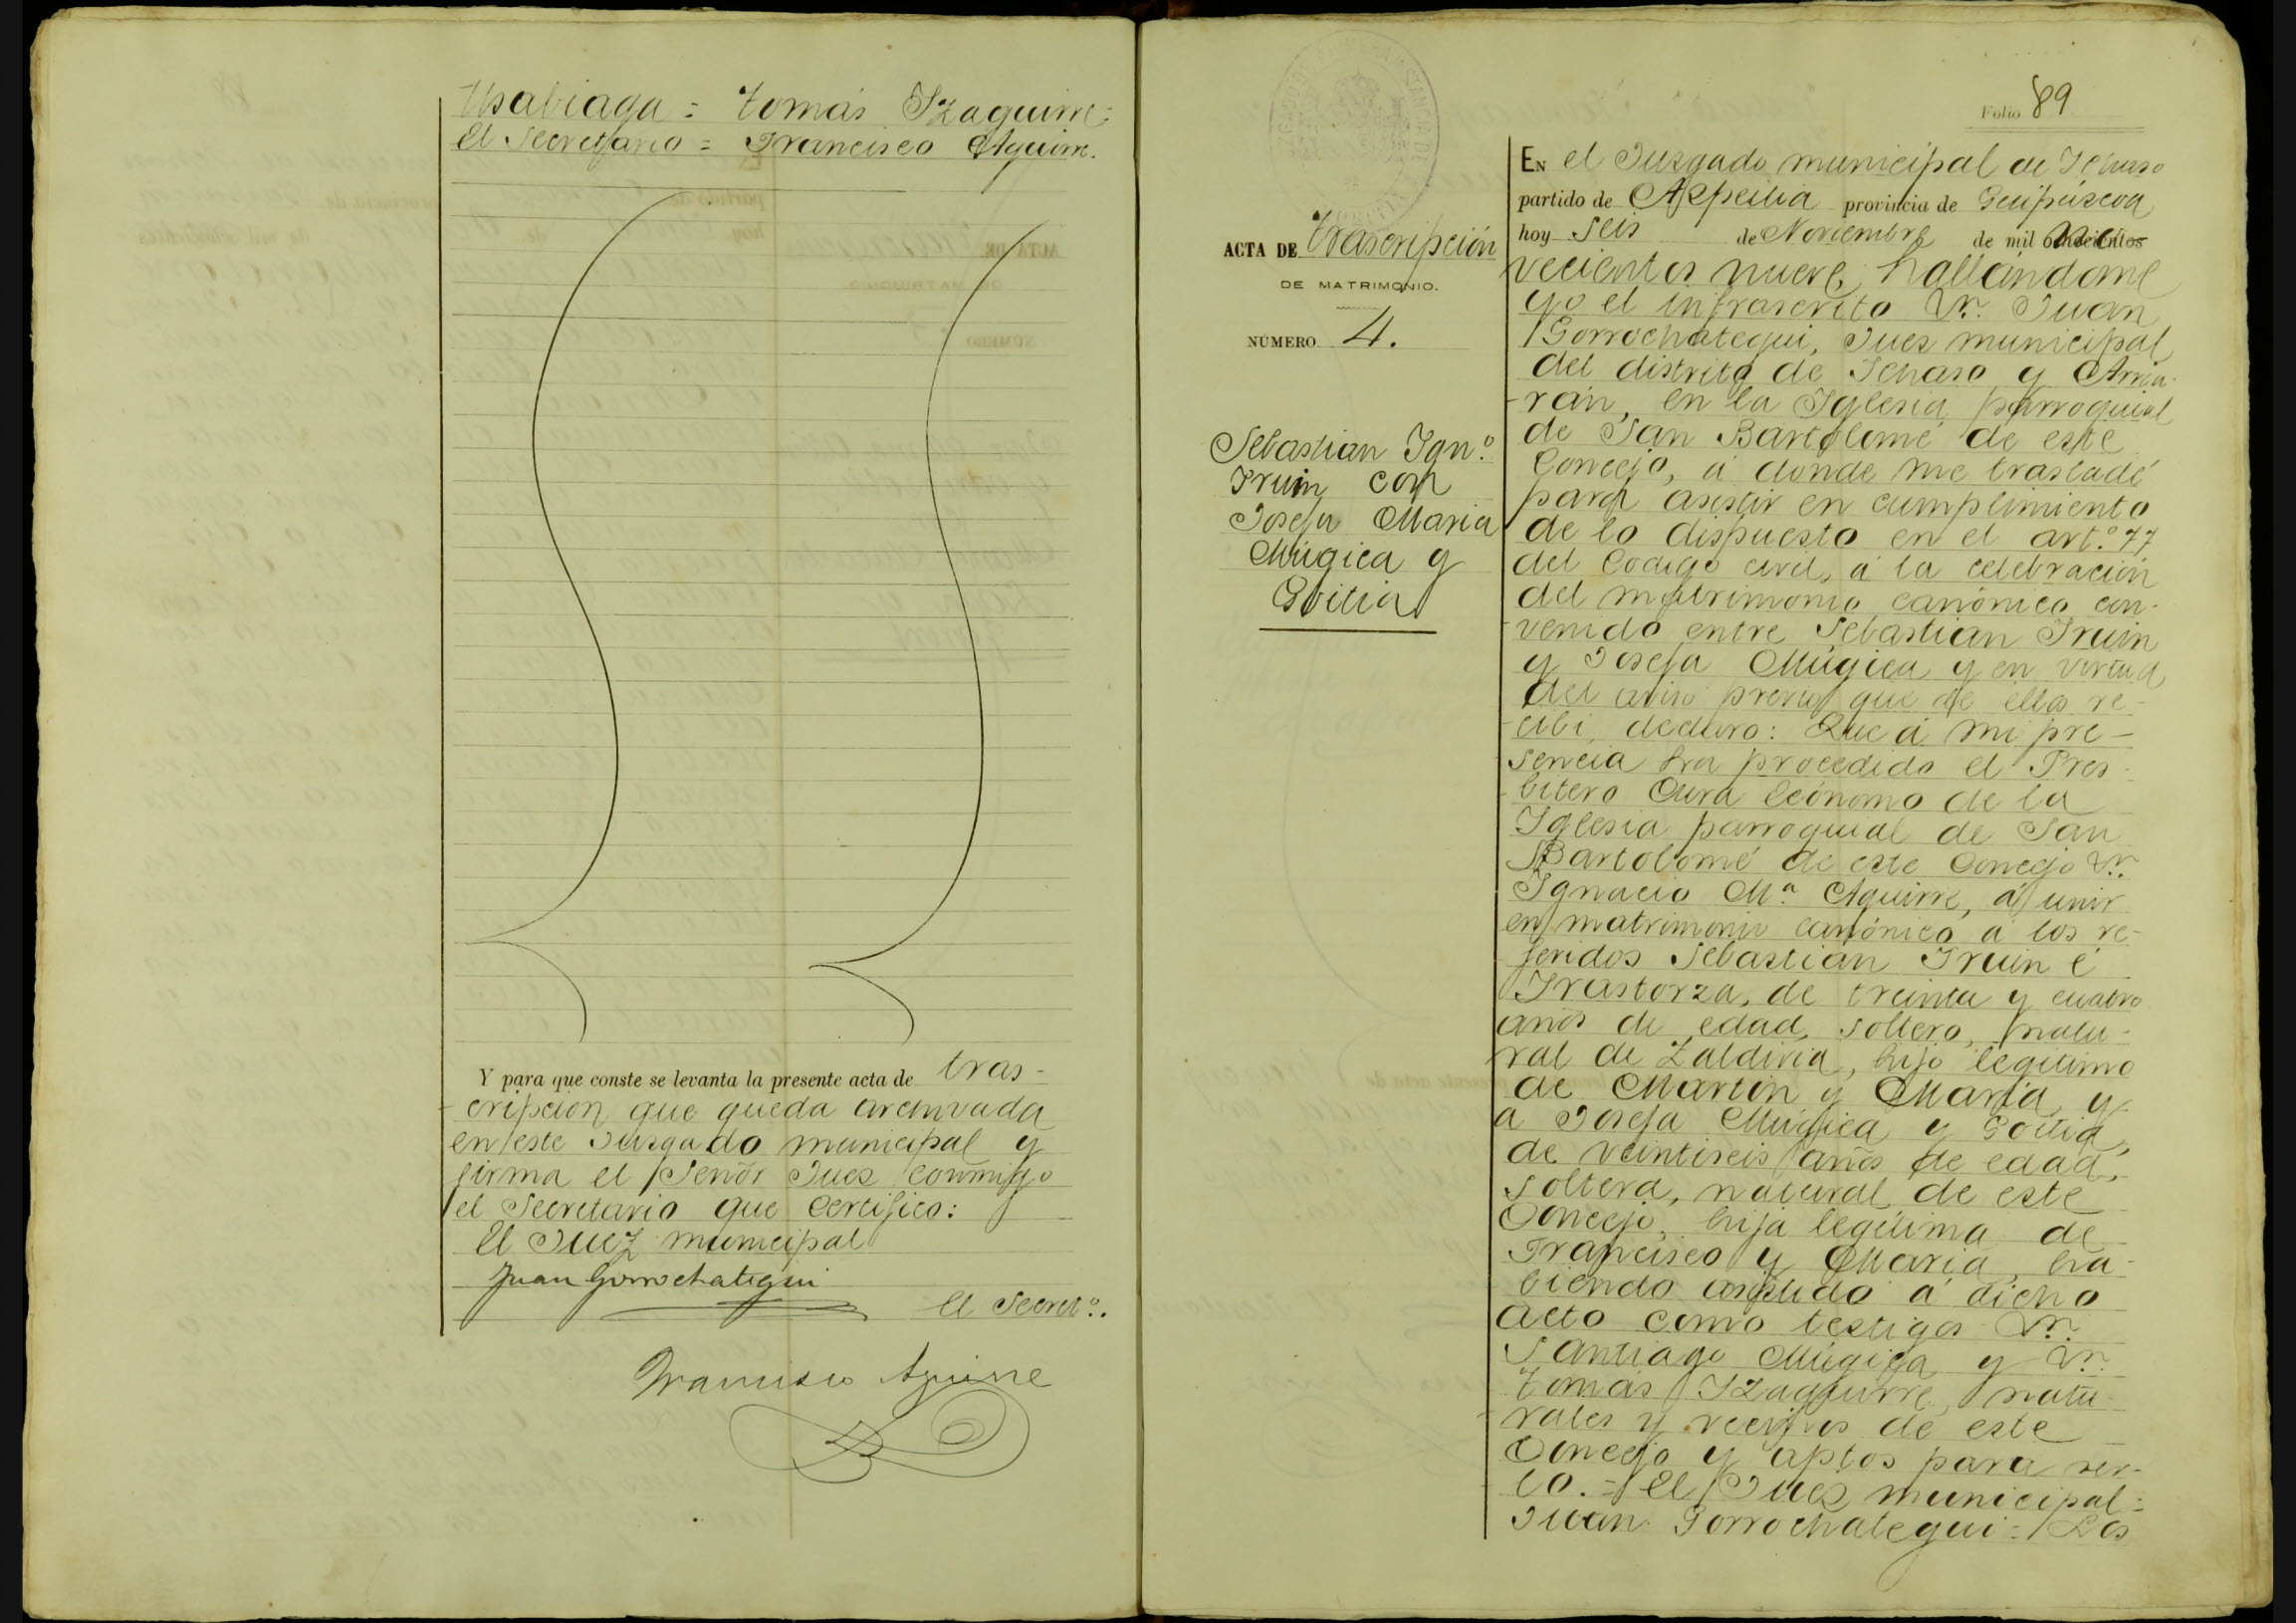 Usabiaga = Tomás Yzaguirre =
El Secretario = Francisco Aguirre.
Y para que conste se levanta la presente acta de tras-
cripción que queda archivada
en este Juzgado municipal y
firma el Señor Juez conmigo
el Secretario que certifico:
El Juez municipal
Juan Gorrochategui
El Secret.º.
Francisco Aguirre
Folio 89
ACTA DE trascripción
DE MATRIMONIO.
NÚMERO 4.
Sebastian Ign.º
Iruin con
Josefa Maria
Múgica y
Goitia
EN el Juzgado municipal de Ichaso
partido de Azpeitia provincia de Guipúzcoa
hoy seis de Noviembre de mil ochocientos no-
vecientos nueve, hallándome
yo el infrascrito Dn. Juan
Gorrochategui, Juez municipal
del distrito de Ichaso y Arria-
rán, en la Iglesia parroquial
de San Bartolomé de este
Concejo, á donde me trasladé
para asistir en cumplimiento
de lo dispuesto en el art.º 77
del Codigo civil, á la celebración
del matrimonio canónico con-
venido entre Sebastian Iruin
y Josefa Múgica y en virtud
del aviso previo que de ellos re-
cibí, declaro: Que á mi pre-
sencia ha procedido el Pres-
bitero Cura Ecónomo de la
Iglesia parroquial de San
Bartolomé de este Concejo Dn.
Ignacio Mª Aguirre, á unir
en matrimonio canónico á los re-
feridos Sebastián Iruin é
Irastorza, de treinta y cuatro
años de edad, soltero, natu-
ral de Zaldivia, hijo legitimo
de Martin y Maria, y
a Josefa Múgica y Goitia,
de veintiseis años de edad,
soltera, natural de este
Concejo, hija legitima de
Francisco y Maria, ha-
biendo asistido á dicho
acto como testigos Dn.
Santiago Múgica y Dn.
Tomás Yzaguirre, natu-
rales y vecinos de este
Concejo y aptos para ser-
lo. = El Juez municipal =
Juan Gorrochategui = Los